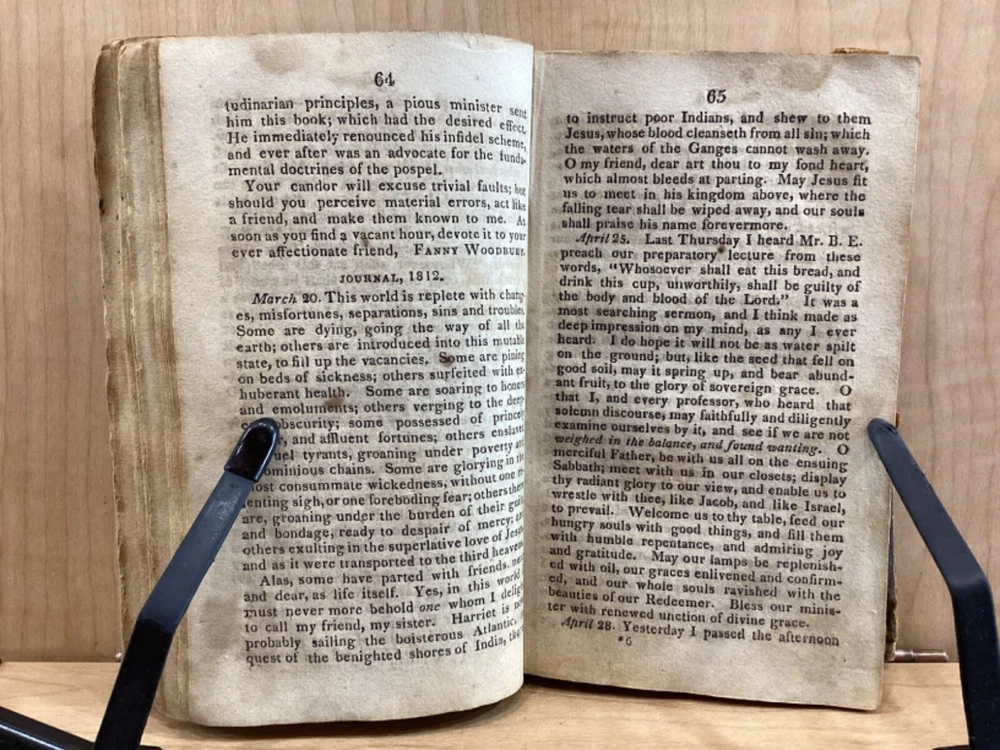 64
tudinarian principles, a pious minister sent
him this book; which had the desired effect.
He immediately renounced his infidel scheme,
and ever after was an advocate for the funda-
mental doctrines of the pospel.
Your candor will excuse trivial faults; but
should you perceive material errors, act like
a friend, and make them known to me. As
soon as you find a vacant hour, devote it to your
ever affectionate friend, FANNY WOODBURY.
JOURNAL, 1812.
March 20. This world is replete with chang-
es, misfortunes, separations, sins and troubles.
Some are dying, going the way of all the
earth; others are introduced into this mutable
state, to fill up the vacancies. Some are pining
on beds of sickness; others surfeited with ex-
huberant health. Some are soaring to honors
and emoluments; others verging to the deep-
obscurity; some possessed of princely
and affluent fortunes; others enslaved
tyrants, groaning under poverty and
chains. Some are glorying in the
most consummate wickedness, without one re-
lenting sigh, or one foreboding fear; others there
are, groaning under the burden of their guilt
and bondage, ready to despair of mercy;
others exulting in the superlative love of Jesus,
and as it were transported to the third heavens.
Alas, some have parted with friends, near
and dear, as life itself. Yes, in this world I
must never more behold one whom I delight
to call my friend, my sister. Harriet is now
probably sailing the boisterous Atlantic, in
quest of the benighted shores of India,
65
to instruct poor Indians, and shew to them
Jesus, whose blood cleanseth from all sin; which
the waters of the Ganges cannot wash away.
O my friend, dear art thou to my fond heart,
which almost bleeds at parting. May Jesus fit
us to meet in his kingdom above, where the
falling tear shall be wiped away, and our souls
shall praise his name forevermore.
April 25. Last Thursday I heard Mr. B. E.
preach our preparatory lecture from these
words, "Whosoever shall eat this bread, and
drink this cup, unworthily, shall be guilty of
the body and blood of the Lord." It was a
most searching sermon, and I think made as
deep impression on my mind, as any I ever
heard. I do hope it will not be as water spilt
on the ground; but, like the seed that fell on
good soil, may it spring up, and bear abund-
ant fruit, to the glory of sovereign grace. O
that I, and every professor, who heard that
solemn discourse, may faithfully and diligently
examine ourselves by it, and see if we are not
weighed in the balance, and found wanting. O
merciful Father, be with us all on the ensuing
Sabbath; meet with us in our closets; display
thy radiant glory to our view, and enable us to
wrestle with thee, like Jacob, and like Israel,
to prevail. Welcome us to thy table, feed our
hungry souls with good things, and fill them
with humble repentance, and admiring joy
and gratitude. May our lamps be replenish-
ed with oil, our graces enlivened and confirm-
ed, and our whole souls ravished with the
beauties of our Redeemer. Bless our minis-
ter with renewed unction of divine grace.
April 28. Yesterday I passed the afternoon
*6